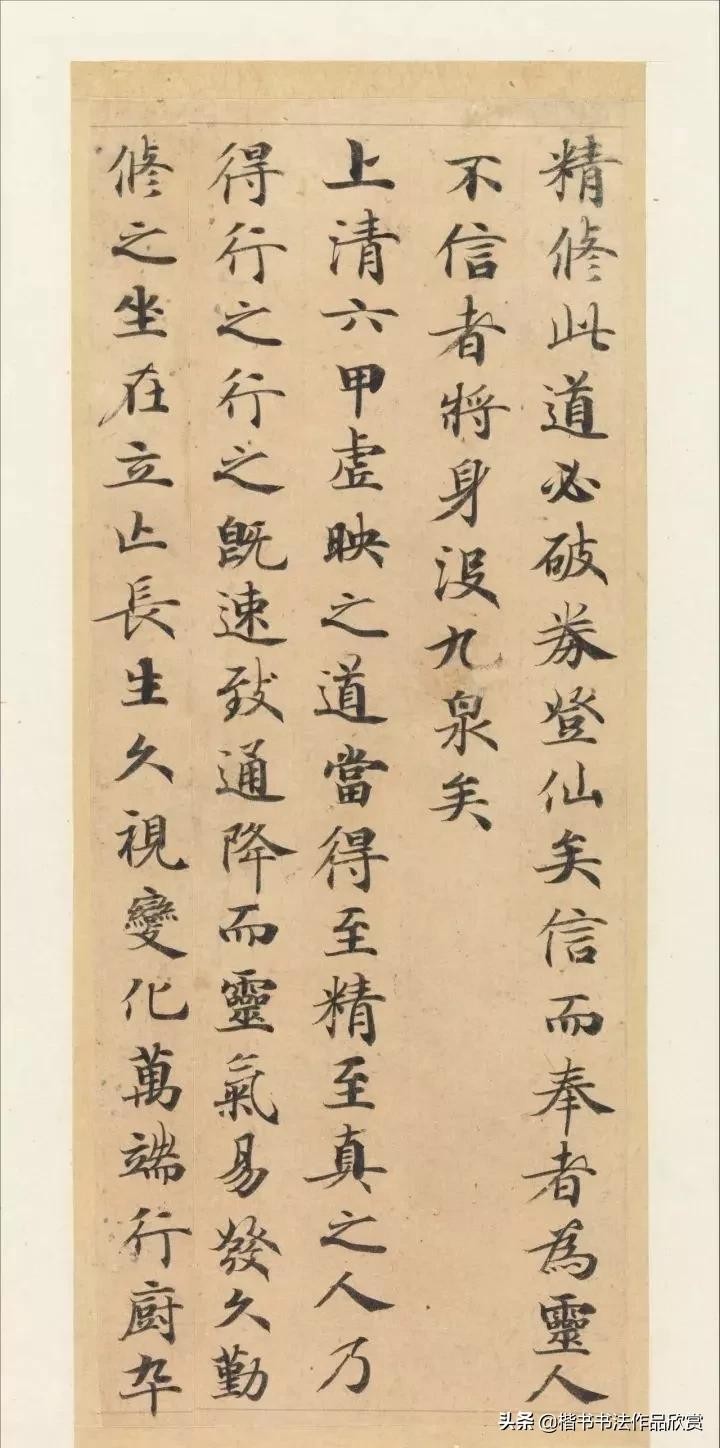 精修此道必破券登仙矣信而奉者為靈人
不信者將身沒九泉矣
上清六甲虛映之道當得至精至真之人乃
得行之行之既速致通降而靈氣易發久勤
修之坐在立亡長生久視變化萬端行廚卒
头条 @楷书书法作品欣赏